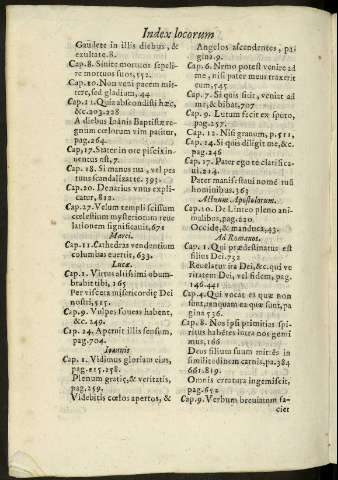 Index locorum
Gaudete in illis diebus, &
exultate. 8.
Cap. 8. Sinite mortuos sepeli-
re mortuos suos, 552.
Cap. 10. Non veni pacem mit-
tere, sed gladium, 44
Cap. 21. Quia abscondisti hæc,
&c. 203. 228
A diebus Ioānis Baptistæ re-
gnum cœlorum vim patitur,
pag. 264.
Cap. 17. Stater in ore piscis in-
uentus est, 7.
Cap. 18. Si manus tua, vel pes
tuus scandalizat te. 393.
Cap. 20. Denarius vnus expli-
catur, 812.
Cap. 27. Velum templi scissum
cœlestium mysteriorum reue
lationem significauit, 671
Marci.
Cap. 11. Cathedras vendentium
columbas euertit, 633.
Lucæ.
Cap. 1. Virtus altissimi obum-
brabit tibi, 265
Per viscera misericordię Dei
nostri, 515.
Cap. 9. Vulpes foueas habent,
&c. 249.
Cap. 24. Aperuit illis sensum,
pag. 704.
Ioannis
Cap. 1. Vidimus gloriam eius,
pag. 215. 258.
Plenum gratię, & veritatis,
pag. 259.
Videbitis cœlos apertos, &
Angelos ascendentes, pa-
gina 9.
Cap. 6. Nemo potest venire ad
me, nisi pater meus traxerit
eum, 545
Cap. 7. Si quis sitit, veniat ad
me, & bibat. 707
Cap. 9. Lutum fecit ex sputo,
pag. 257.
Cap. 12. Nisi granum, p. 511,
Cap. 14. Si quis diligit me, &c.
pag. 246
Cap. 17. Pater ego te clarifica-
ui. 214.
Pater manifestaui nome tuū
hominibus. 363
Actuum Apostolorum.
Cap. 10. De Linteo pleno ani-
malibus, pag. 620.
Occide, & manduca, 43.
Ad Romanos.
Cap. 1. Qui prædestinatus est
filius Dei. 732
Reuelatur ira Dei, &c. qui ve
ritatem Dei, vel fidem, pag.
146. 441
Cap. 4. Qui vocat ea quæ non
sunt, tanquam ea quæ sunt, pa
gina 736.
Cap. 8. Nos ipsi primitias spi-
ritus habētes intra nos gemi
mus, 166
Deus filium suum mittēs in
similitudinem carnis, pa. 384
661. 819.
Omnis creatura ingemiscit,
pag. 652
Cap. 9. Verbum breuiatum fa-
ciet